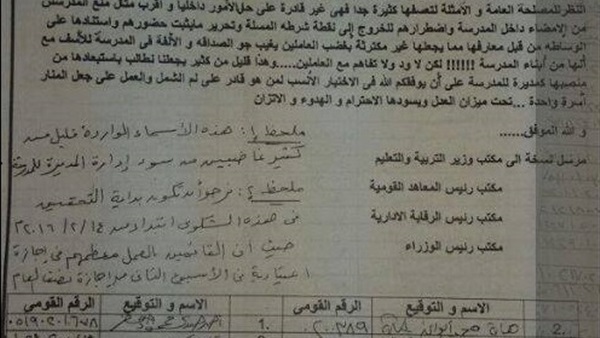 النظر للمصلحة العامة و الأمثلة لتعسفها كثيرة جدا فهى غير قادرة على حل الأمور داخليا و أقرب مثل منع المدرسين
من الإمضاء داخل المدرسة واضطرارهم للخروج إلى نقطة شرطه المسلة وتحرير مايثبت حضورهم واستنادها على
الوساطه من قبل معارفها مما يجعلها غير مكترثة بغضب العاملين يغيب جو الصداقه و الألفة فى المدرسة للأسف مع
أنها من أبناء المدرسة !!!!!! لكن لا ود ولا تفاهم مع العاملين.....وهذا قليل من كثير يجعلنا نطالب باستبعادها من
منصبها كمديرة للمدرسة على أن يوفقكم الله فى الاختيار الأنسب لمن هو قادر على لم الشمل والعمل على جعل المنار
أسرة واحدة ...تحت ميزان العدل ويسودها الاحترام و الهدوء و الاتزان
و الله الموفق......
ملحظ ١: هذه الأسماء الواردة قليل من
كثير غاضبين من سوء إدارة المديرة للمدرسة
مرسل نسخة الى مكتب وزير التربية والتعليم
مكتب رئيس المعاهد القومية
مكتب رئيس الرقابة الادارية
مكتب رئيس الوزراء
ملحظ ٢: نرجو أن تكون بداية التحقيق
فى هذه الشكوى ابتداء من ٢٠١٦/٢/١٤
حيث أن القائمين بالعمل معظمهم فى إجازة
اعتيادية فى الأسبوع الثانى من إجازة نصف العام
الاسم و التوقيع الرقم القومى الاسم و التوقيع الرقم القومى
1. 2.